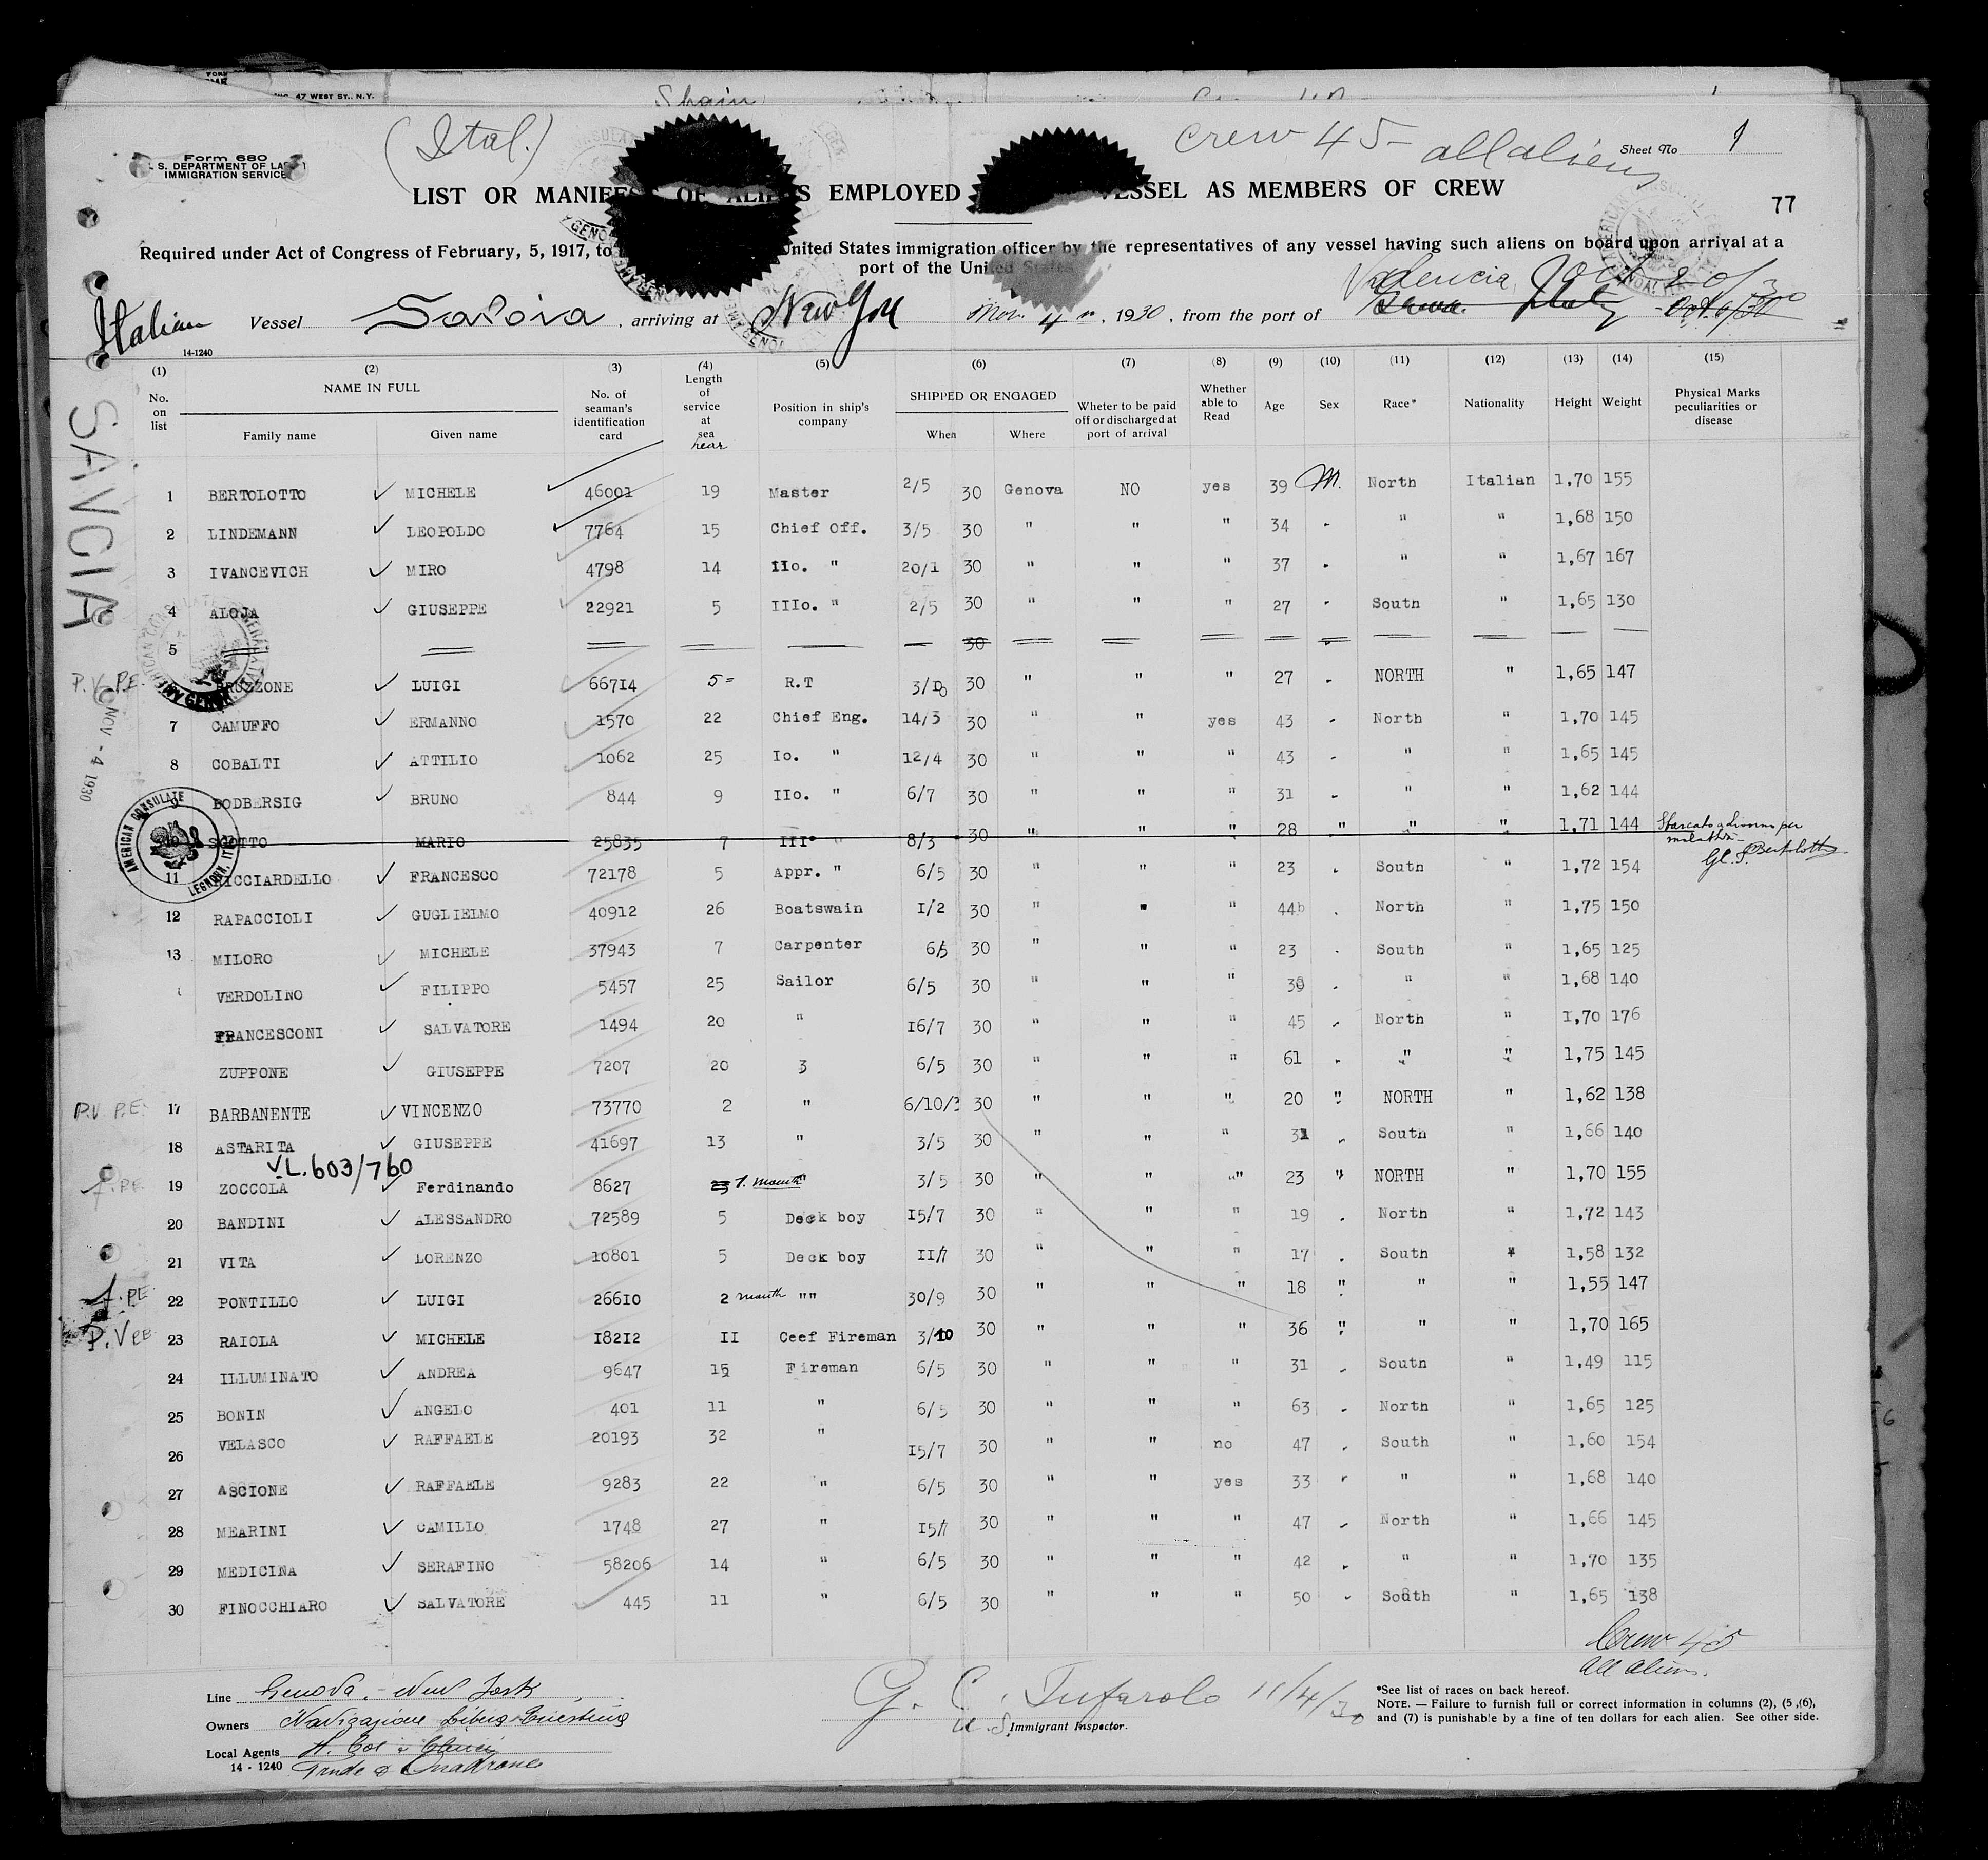 FORM
47 WEST ST., N.Y.
Spain
(Ital.)
Crew 45 - all aliens
Sheet No 1
Form 680
U. S. DEPARTMENT OF LABOR
IMMIGRATION SERVICE
LIST OR MANIFEST OF ALIENS EMPLOYED VESSEL AS MEMBERS OF CREW
77
Required under Act of Congress of February, 5, 1917, to United States immigration officer by the representatives of any vessel having such aliens on board upon arrival at a
port of the United States
Valencia, Oct 20/30
Italian Vessel Savoia, arriving at New York Nov. 4, 1930, from the port of Genova Italy Oct. 6/30
14-1240
(1) (2) (3) (4) (5) (6) (7) (8) (9) (10) (11) (12) (13) (14) (15)
No. on list
NAME IN FULL
Family name Given name
No. of seaman's identification card
Length of service at sea
Position in ship's company
SHIPPED OR ENGAGED
When Where
Wheter to be paid off or discharged at port of arrival
Whether able to Read
Age Sex Race* Nationality Height Weight
Physical Marks peculiarities or disease
1 BERTOLOTTO MICHELE 46001 19 Master 2/5 30 Genova NO yes 39 M. North Italian 1,70 155
2 LINDEMANN LEOPOLDO 7764 15 Chief Off. 3/5 30 " " " 34 - " " 1,68 150
3 IVANCEVICH MIRO 4798 14 IIo. " 20/1 30 " " " 37 - " " 1,67 167
4 ALOJA GIUSEPPE 22921 5 IIIo. " 2/5 30 " " " 27 - South " 1,65 130
5 30
P.V. P.E. BRUZZONE LUIGI 66714 5 = R.T 3/10 30 " " " 27 - NORTH " 1,65 147
7 CAMUFFO ERMANNO 1570 22 Chief Eng. 14/3 30 " " yes 43 - North " 1,70 145
8 COBALTI ATTILIO 1062 25 Io. " 12/4 30 " " " 43 - " " 1,65 145
9 BODBERSIG BRUNO 844 9 IIo. " 6/7 30 " " " 31 - " " 1,62 144
10 SCOTTO MARIO 25835 7 III° " 8/3 30 " " " 28 " " " 1,71 144
11 RICCIARDELLO FRANCESCO 72178 5 Appr. " 6/5 30 " " " 23 - South 1,72 154
12 RAPACCIOLI GUGLIELMO 40912 26 Boatswain 1/2 30 " " " 44 - North " 1,75 150
13 MILORO MICHELE 37943 7 Carpenter 6/5 30 " " " 23 - South " 1,65 125
VERDOLINO FILIPPO 5457 25 Sailor 6/5 30 " " " 39 - " " 1,68 140
FRANCESCONI SALVATORE 1494 20 " 16/7 30 " " " 45 - North " 1,70 176
ZUPPONE GIUSEPPE 7207 20 3 6/5 30 " " " 61 - " " 1,75 145
P.V. P.E. 17 BARBANENTE VINCENZO 73770 2 " 6/10/3 30 " " " 20 " NORTH " 1,62 138
18 ASTARITA GIUSEPPE 41697 13 " 3/5 30 " " " 31 - South " 1,66 140
VL.603/760
19 ZOCCOLA Ferdinando 8627 1. month " 3/5 30 " " " 23 " NORTH " 1,70 155
20 BANDINI ALESSANDRO 72589 5 Deck boy 15/7 30 " " " 19 - North " 1,72 143
21 VITA LORENZO 10801 5 Deck boy 11/7 30 " " " 17 - South " 1,58 132
22 PONTILLO LUIGI 26610 2 month "" 30/9 30 " " " 18 " " " 1,55 147
P.V. P.E. 23 RAIOLA MICHELE 18212 II Ceef Fireman 3/10 30 " " " 36 " " " 1,70 165
24 ILLUMINATO ANDREA 9647 15 Fireman 6/5 30 " " " 31 - South " 1,49 115
25 BONIN ANGELO 401 11 " 6/5 30 " " " 63 - North " 1,65 125
26 VELASCO RAFFAELE 20193 32 " 15/7 30 " " no 47 - South " 1,60 154
27 ASCIONE RAFFAELE 9283 22 " 6/5 30 " " yes 33 - " " 1,68 140
28 MEARINI CAMILLO 1748 27 " 15/7 30 " " " 47 - North " 1,66 145
29 MEDICINA SERAFINO 58206 14 " 6/5 30 " " " 42 - " " 1,70 135
30 FINOCCHIARO SALVATORE 445 11 " 6/5 30 " " " 50 - South " 1,65 138
SAVOIA
NOV - 4 1930
AMERICAN CONSULATE
LEGHORN, ITALY
Crew 45
all aliens.
Line Genova - New York
Owners Navigazione Libera Triestina
Local Agents
14 - 1240
G. C. Tufarolo 11/4/30
U. S. Immigrant Inspector.
*See list of races on back hereof.
NOTE. — Failure to furnish full or correct information in columns (2), (5 ,(6),
and (7) is punishable by a fine of ten dollars for each alien. See other side.